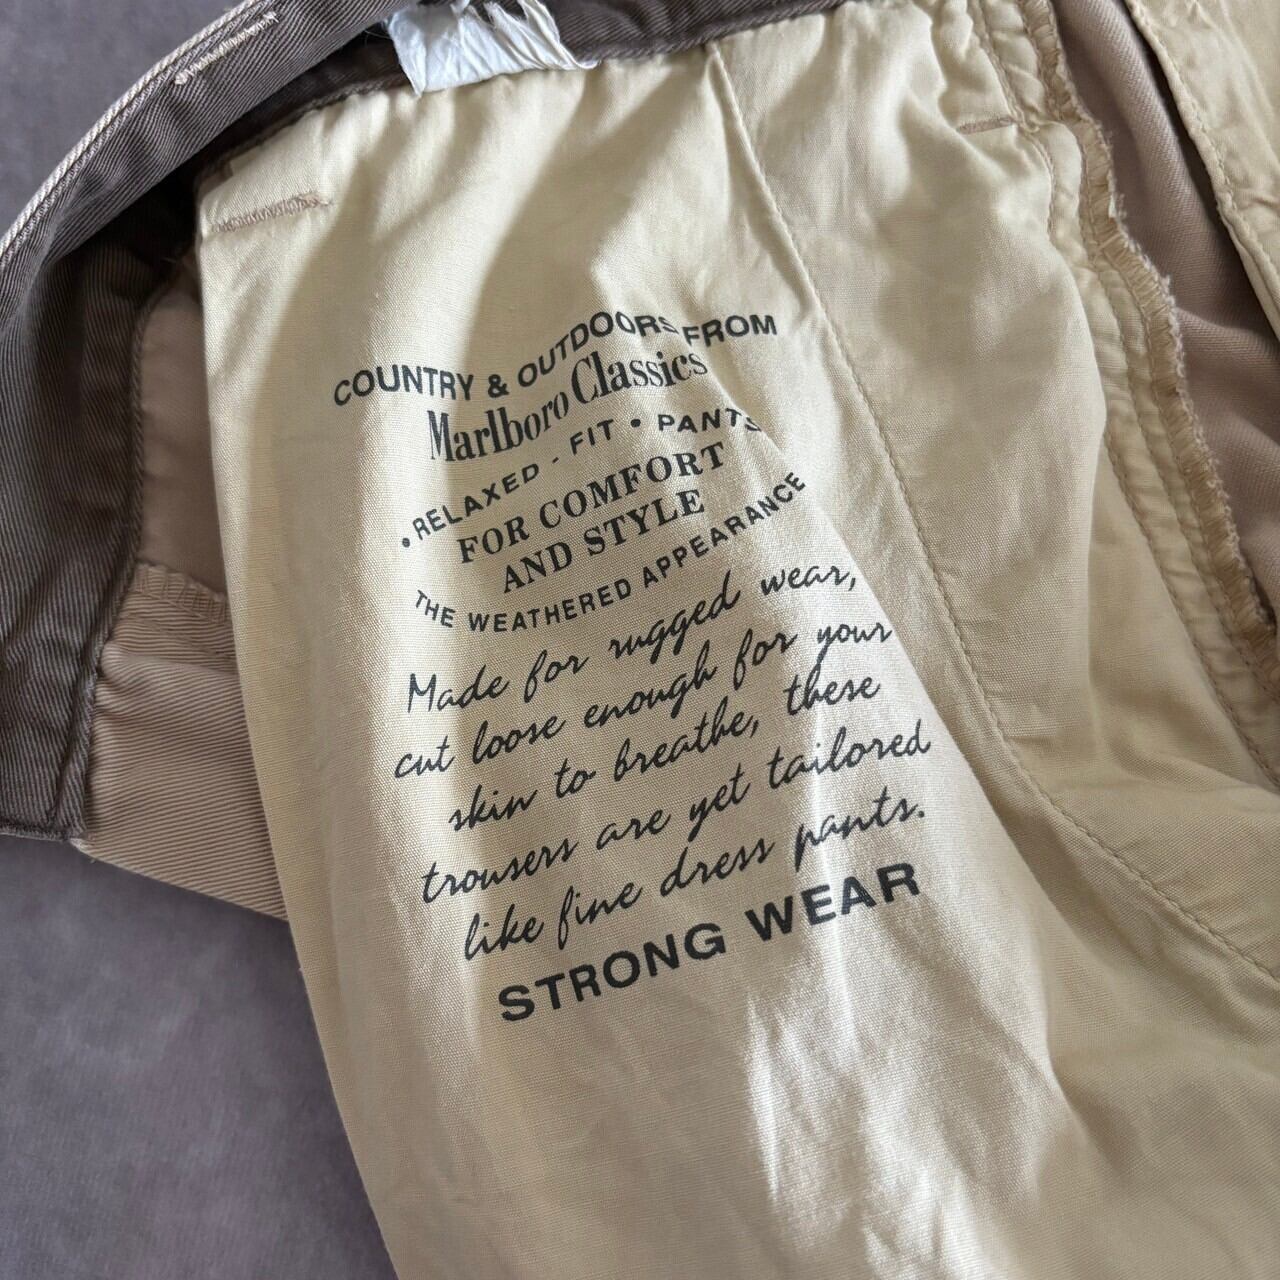 COUNTRY & OUTDOORS FROM
Marlboro Classics
• RELAXED - FIT • PANTS
FOR COMFORT
AND STYLE
THE WEATHERED APPEARANCE
Made for rugged wear,
cut loose enough for your
skin to breathe, these
trousers are yet tailored
like fine dress pants.
STRONG WEAR